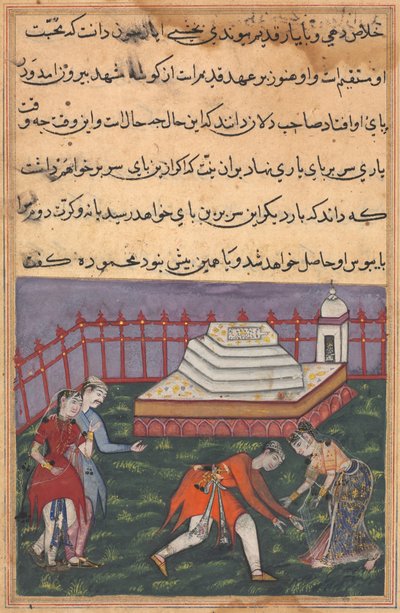 خلاص دهی و با یار قدیم پیوندی بخشی چون دانست که محبت
او مستقیم است و او هنوز بر عهد قدیم است از کوشه مشهد بیرون آمد و در
پای او افتاد صاحب دلان دانند که این حال چه حال است و این وقت چه وقت
یاری سر بر پای یاری نهاد بر آن نیت که اکر ازین پای سر بر خواهم داشت
که داند که بار دیکر این سر برین پای خواهد رسید یا نه و کرت دوم
پای بوس او حاصل خواهد شد و یا همین بیش نبود محموده کفت